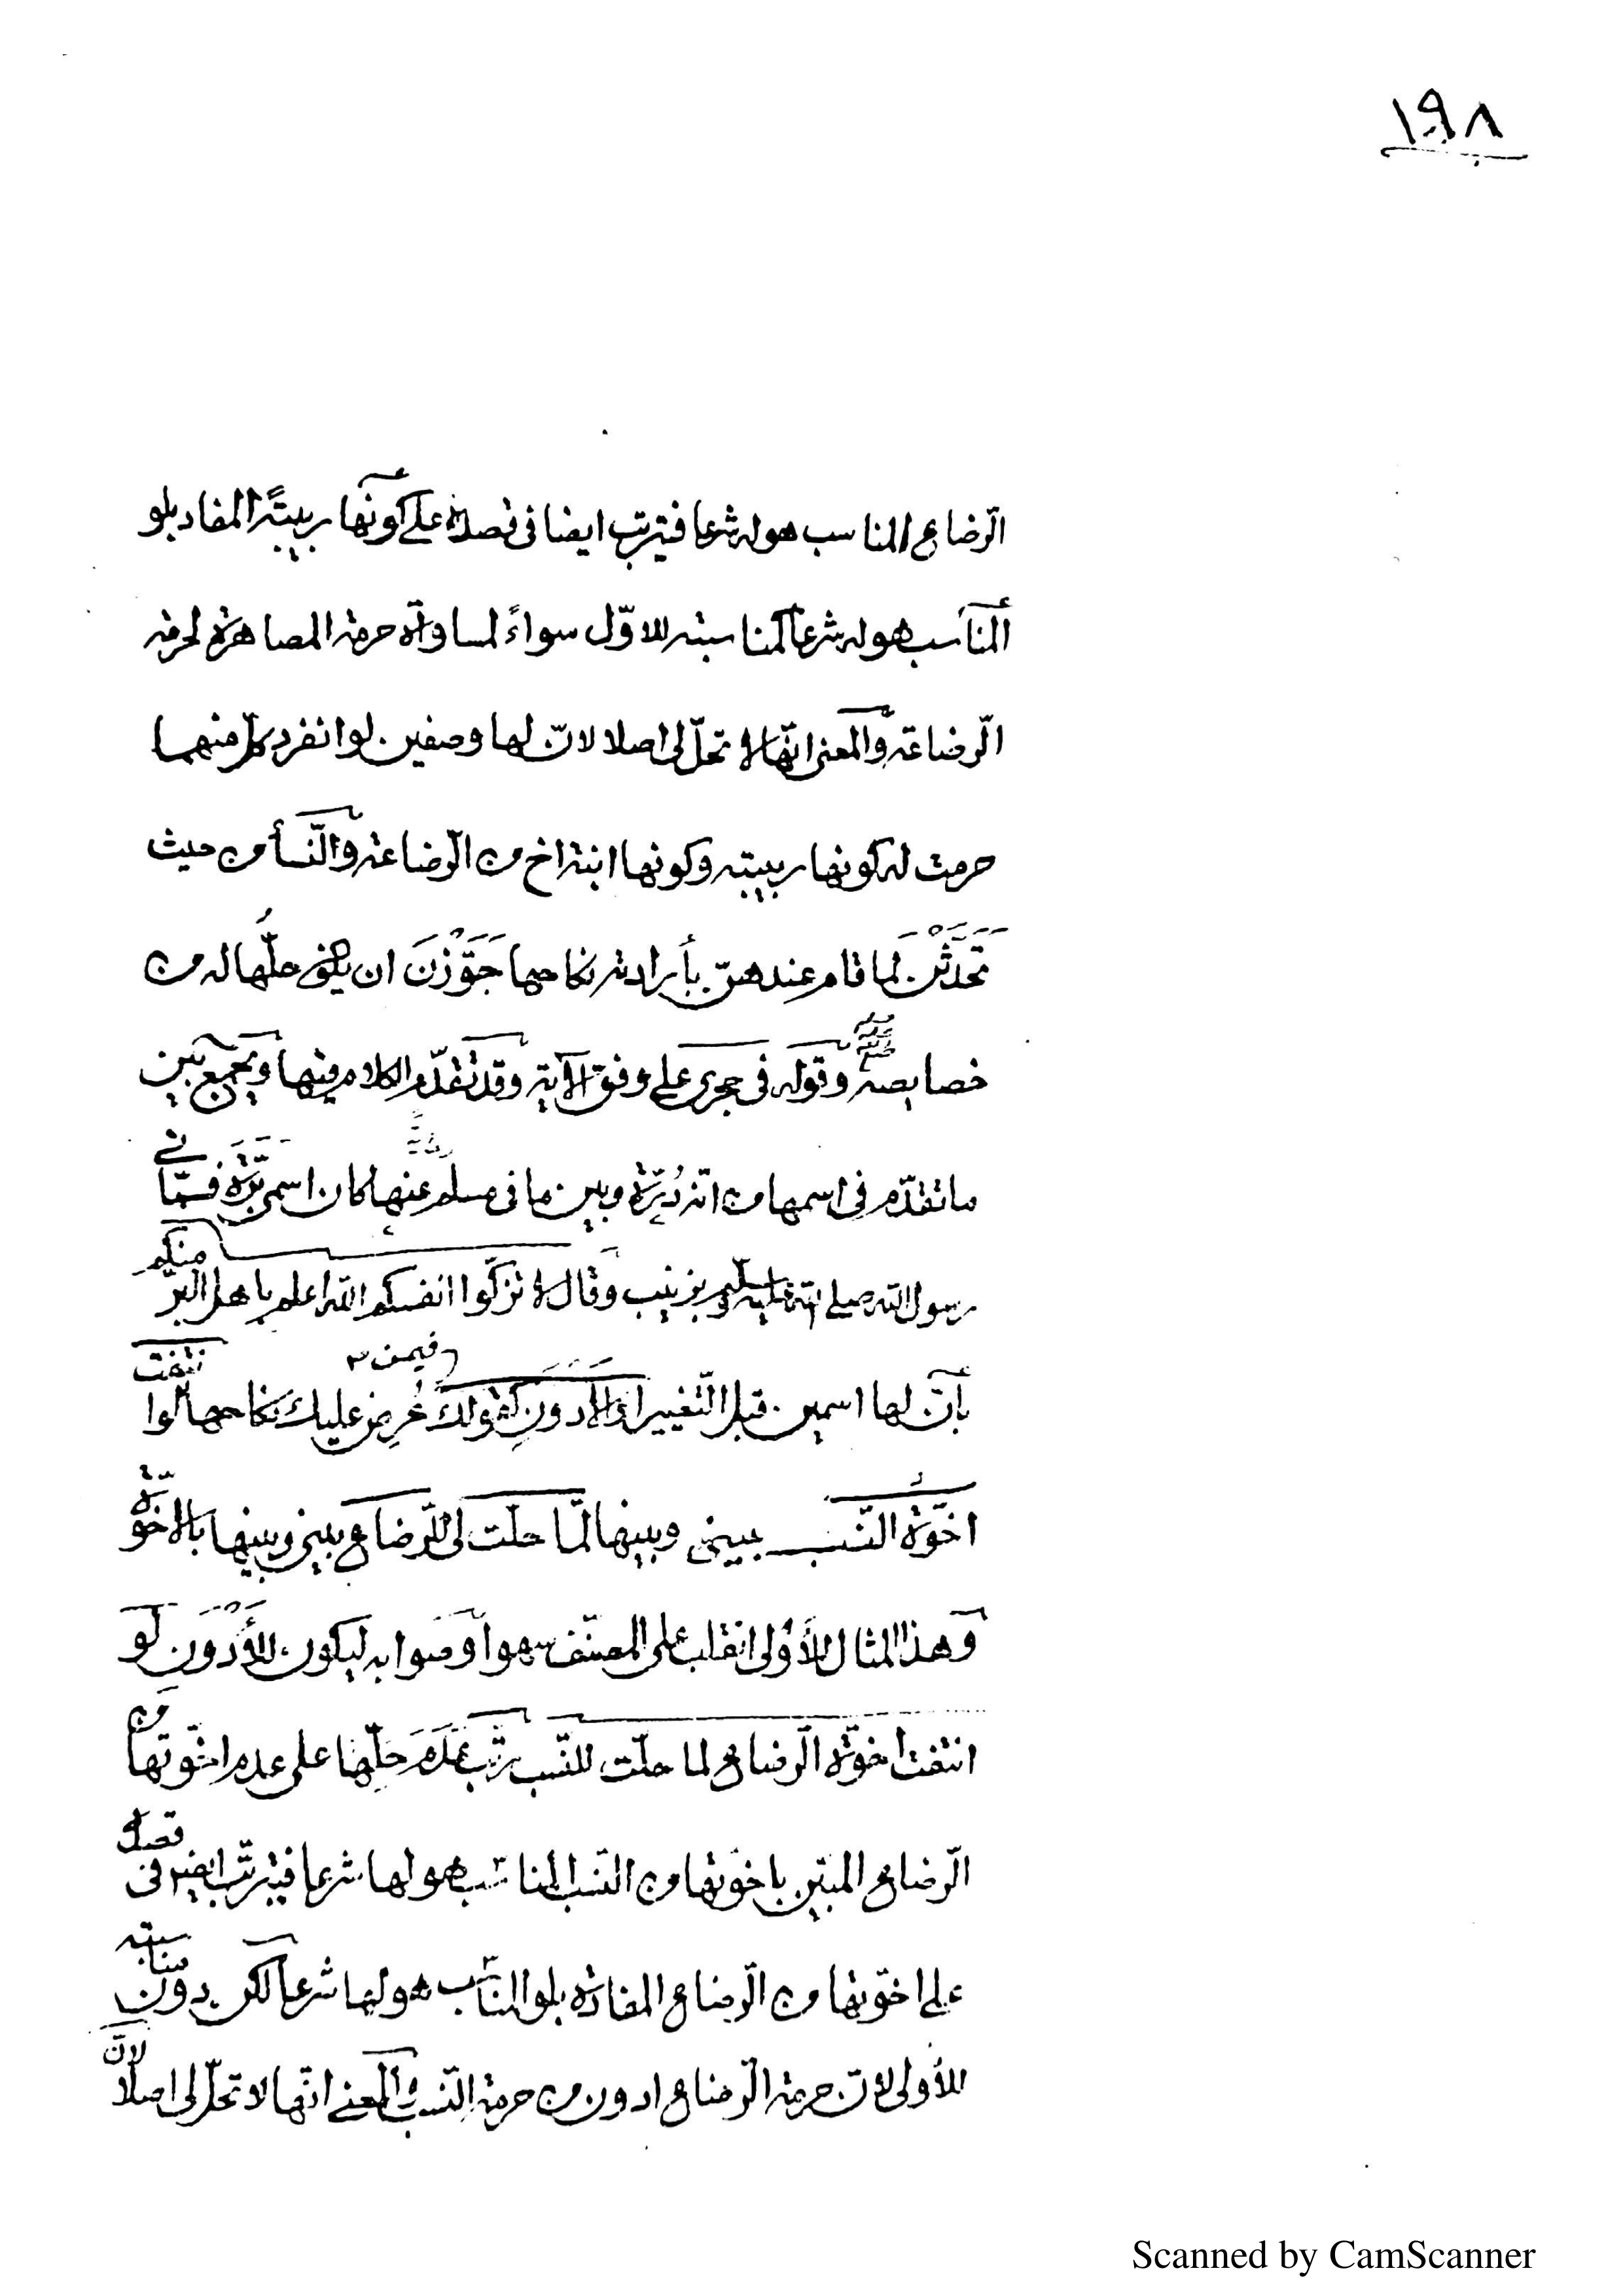 ١٩٨
الرّضاع المناسب هو له شرعا فيترتب ايضا فى قصده على كونها ربيبةً المفاد بلو
المناسب هو له شرعا كمناسبته للاوّل سواءً لمساواة حرمة المصاهرة لحرمة
الرّضاعة والمعنى انّها لا تحلّ لى اصلا لانّ لها وصفين لو انفرد كلّ منهما
حرمت له كونها ربيبته وكونها ابنة اخ من الرّضاعة والنّسأ من حيث
تحدّثن لما قام عندهنّ بأرادته نكاحها جَوَّزْنَ ان يكون حلّها له من
خصايصه ﷺ وقوله فى حجرى على وفق الآية وقد تقدّم الكلام فيها ويجمع بين
ما تقدّم فى اسمها من انه دُرّة وبين ما فى مسلم عنها كان اسمى بَرّة فسمّانى
رسول الله صلى الله عليه وسلم زينب وقال لا تزكّوا انفسكم الله اعلم باهل البرّ منكم
بأنّ لها اسمين قبل التّغيير او الأدون كقولك فيمن عُرِض عليك نكاحها لو انتفت
اخوّة النّسب بينى وبينها لمّا حلّت لى للرّضاع بينى وبينها بالاخوّة
وهذا المثال للأولى انقلب على المصنّف سهوا وصوابه ليكون للأدْوَنِ لو
انتفت اخوّة الرّضاع لما حلّت للنّسب رتّب عَدَمَ حِلِّها على عدم اخوّتها من
الرّضاع المبيّن باخوّتها من النّسب المناسب هو لها شرعا فيترتّب ايضا فى قصده
على اخوّتها من الرّضاع المفادة بلو المناسب هو لها شرعا لكن دون مناسبته
للأولى لانّ حرمة الرّضاع ادون من حرمة النّسب والمعنى انّها لا تحلّ لى اصلًا لانّ
Scanned by CamScanner